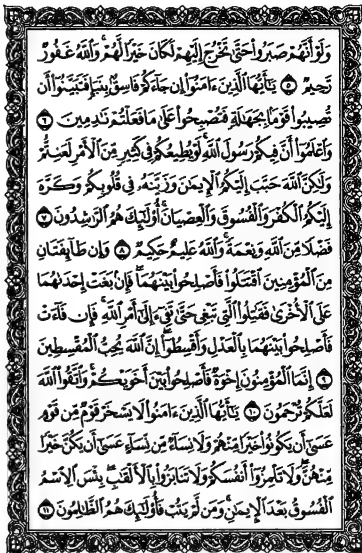 وَلَوْ أَنَّهُمْ صَبَرُوا۟ حَتَّىٰ تَخْرُجَ إِلَيْهِمْ لَكَانَ خَيْرًا لَّهُمْ وَٱللَّهُ غَفُورٌ
رَّحِيمٌ ٥ يَٰٓأَيُّهَا ٱلَّذِينَ ءَامَنُوٓا۟ إِن جَآءَكُمْ فَاسِقٌۢ بِنَبَإٍ فَتَبَيَّنُوٓا۟ أَن
تُصِيبُوا۟ قَوْمًۢا بِجَهَٰلَةٍ فَتُصْبِحُوا۟ عَلَىٰ مَا فَعَلْتُمْ نَٰدِمِينَ ٦
وَٱعْلَمُوٓا۟ أَنَّ فِيكُمْ رَسُولَ ٱللَّهِ لَوْ يُطِيعُكُمْ فِى كَثِيرٍ مِّنَ ٱلْأَمْرِ لَعَنِتُّمْ
وَلَٰكِنَّ ٱللَّهَ حَبَّبَ إِلَيْكُمُ ٱلْإِيمَٰنَ وَزَيَّنَهُۥ فِى قُلُوبِكُمْ وَكَرَّهَ
إِلَيْكُمُ ٱلْكُفْرَ وَٱلْفُسُوقَ وَٱلْعِصْيَانَ أُو۟لَٰٓئِكَ هُمُ ٱلرَّٰشِدُونَ ٧
فَضْلًا مِّنَ ٱللَّهِ وَنِعْمَةً وَٱللَّهُ عَلِيمٌ حَكِيمٌ ٨ وَإِن طَآئِفَتَانِ
مِنَ ٱلْمُؤْمِنِينَ ٱقْتَتَلُوا۟ فَأَصْلِحُوا۟ بَيْنَهُمَا فَإِنۢ بَغَتْ إِحْدَىٰهُمَا
عَلَى ٱلْأُخْرَىٰ فَقَٰتِلُوا۟ ٱلَّتِى تَبْغِى حَتَّىٰ تَفِىٓءَ إِلَىٰٓ أَمْرِ ٱللَّهِ فَإِن فَآءَتْ
فَأَصْلِحُوا۟ بَيْنَهُمَا بِٱلْعَدْلِ وَأَقْسِطُوٓا۟ إِنَّ ٱللَّهَ يُحِبُّ ٱلْمُقْسِطِينَ
٩ إِنَّمَا ٱلْمُؤْمِنُونَ إِخْوَةٌ فَأَصْلِحُوا۟ بَيْنَ أَخَوَيْكُمْ وَٱتَّقُوا۟ ٱللَّهَ
لَعَلَّكُمْ تُرْحَمُونَ ١٠ يَٰٓأَيُّهَا ٱلَّذِينَ ءَامَنُوا۟ لَا يَسْخَرْ قَوْمٌ مِّن قَوْمٍ
عَسَىٰٓ أَن يَكُونُوا۟ خَيْرًا مِّنْهُمْ وَلَا نِسَآءٌ مِّن نِّسَآءٍ عَسَىٰٓ أَن يَكُنَّ خَيْرًا
مِّنْهُنَّ وَلَا تَلْمِزُوٓا۟ أَنفُسَكُمْ وَلَا تَنَابَزُوا۟ بِٱلْأَلْقَٰبِ بِئْسَ ٱلِٱسْمُ
ٱلْفُسُوقُ بَعْدَ ٱلْإِيمَٰنِ وَمَن لَّمْ يَتُبْ فَأُو۟لَٰٓئِكَ هُمُ ٱلظَّٰلِمُونَ ١١